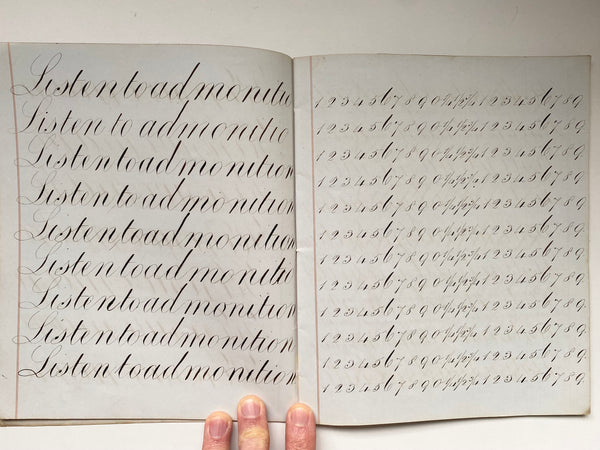 Listen to admonitio
Listen to admonitio
Listen to admonition
Listen to admonition
Listen to admonition
Listen to admonitio
Listen to admonition
Listen to admonition
Listen to admonition
1 2 3 4 5 6 7 8 9 0 ¼ ½ ¾ 1 2 3 4 5 6 7 8 9.
1 2 3 4 5 6 7 8 9 0 ¼ ½ ¾ 1 2 3 4 5 6 7 8 9.
1 2 3 4 5 6 7 8 9 0 ¼ ½ ¾ 1 2 3 4 5 6 7 8 9.
1 2 3 4 5 6 7 8 9 0 ¼ ½ ¾ 1 2 3 4 5 6 7 8 9.
1 2 3 4 5 6 7 8 9 0 ¼ ½ ¾ 1 2 3 4 5 6 7 8 9.
1 2 3 4 5 6 7 8 9 0 ¼ ½ ¾ 1 2 3 4 5 6 7 8 9.
1 2 3 4 5 6 7 8 9 0 ¼ ½ ¾ 1 2 3 4 5 6 7 8 9.
1 2 3 4 5 6 7 8 9 0 ¼ ½ ¾ 1 2 3 4 5 6 7 8 9.
1 2 3 4 5 6 7 8 9 0 ¼ ½ ¾ 1 2 3 4 5 6 7 8 9.
1 2 3 4 5 6 7 8 9 0 ¼ ½ ¾ 1 2 3 4 5 6 7 8 9.
1 2 3 4 5 6 7 8 9 0 ¼ ½ ¾ 1 2 3 4 5 6 7 8 9.
1 2 3 4 5 6 7 8 9 0 ¼ ½ ¾ 1 2 3 4 5 6 7 8 9.